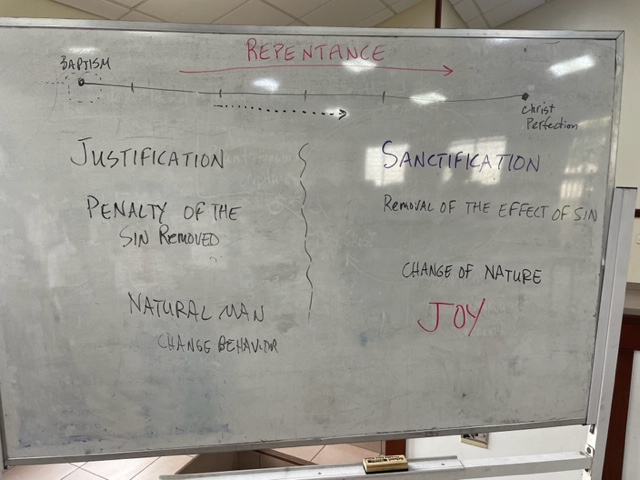 REPENTANCE
BAPTISM
Christ
Perfection
JUSTIFICATION
SANCTIFICATION
PENALTY OF THE
SIN REMOVED
REMOVAL OF THE EFFECT OF SIN
CHANGE OF NATURE
NATURAL MAN
JOY
CHANGE BEHAVIOR